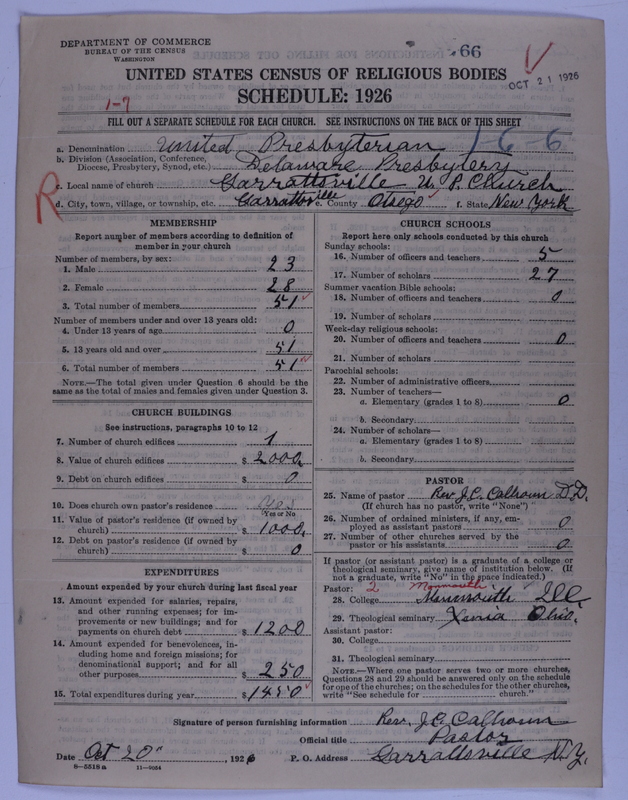 DEPARTMENT OF COMMERCE
BUREAU OF THE CENSUS
WASHINGTON
66
OCT 21 1926
UNITED STATES CENSUS OF RELIGIOUS BODIES
1-7
SCHEDULE: 1926
FILL OUT A SEPARATE SCHEDULE FOR EACH CHURCH. SEE INSTRUCTIONS ON THE BACK OF THIS SHEET
a. Denomination United Presbyterian 16-6
b. Division (Association, Conference, Diocese, Presbytery, Synod, etc.) Delaware Presbytery
c. Local name of church Garrattsville U. P. Church
R
d. City, town, village, or township, etc. Garrattsville e. County Otsego f. State New York
MEMBERSHIP
Report number of members according to definition of member in your church
Number of members, by sex:
1. Male 23
2. Female 28
3. Total number of members 51
Number of members under and over 13 years old:
4. Under 13 years of age 0
5. 13 years old and over 51
6. Total number of members 51
NOTE.—The total given under Question 6 should be the same as the total of males and females given under Question 3.
CHURCH BUILDINGS
See instructions, paragraphs 10 to 12
7. Number of church edifices 1
8. Value of church edifices $ 2000.
9. Debt on church edifices $ 0
10. Does church own pastor's residence? Yes
Yes or No
11. Value of pastor's residence (if owned by church) $ 1000.
12. Debt on pastor's residence (if owned by church) $ 0
EXPENDITURES
Amount expended by your church during last fiscal year
13. Amount expended for salaries, repairs, and other running expenses; for improvements or new buildings; and for payments on church debt $ 1200
14. Amount expended for benevolences, including home and foreign missions; for denominational support; and for all other purposes $ 250
15. Total expenditures during year $ 1450
CHURCH SCHOOLS
Report here only schools conducted by this church
Sunday schools:
16. Number of officers and teachers 5
17. Number of scholars 27
Summer vacation Bible schools:
18. Number of officers and teachers 0
19. Number of scholars
Week-day religious schools:
20. Number of officers and teachers 0
21. Number of scholars
Parochial schools:
22. Number of administrative officers
23. Number of teachers—
a. Elementary (grades 1 to 8) 0
b. Secondary
24. Number of scholars—
a. Elementary (grades 1 to 8)
b. Secondary
PASTOR
25. Name of pastor Rev. J. C. Calhoun D.D.
(If church has no pastor, write "None")
26. Number of ordained ministers, if any, employed as assistant pastors 0
27. Number of other churches served by the pastor or his assistants 0
If pastor (or assistant pastor) is a graduate of a college or theological seminary, give name of institution below. (If not a graduate, write "No" in the space indicated.)
Pastor: 2 Monmouth
28. College Monmouth Ill.
29. Theological seminary Xenia Ohio.
Assistant pastor:
30. College
31. Theological seminary
NOTE.—Where one pastor serves two or more churches, Questions 28 and 29 should be answered only on the schedule for one of the churches; on the schedules for the other churches, write "See schedule for church."
Signature of person furnishing information Rev. J. C. Calhoun
Official title Pastor
Date Oct 20", 1926 P. O. Address Garrattsville N.Y.
8-5518a 11-9064